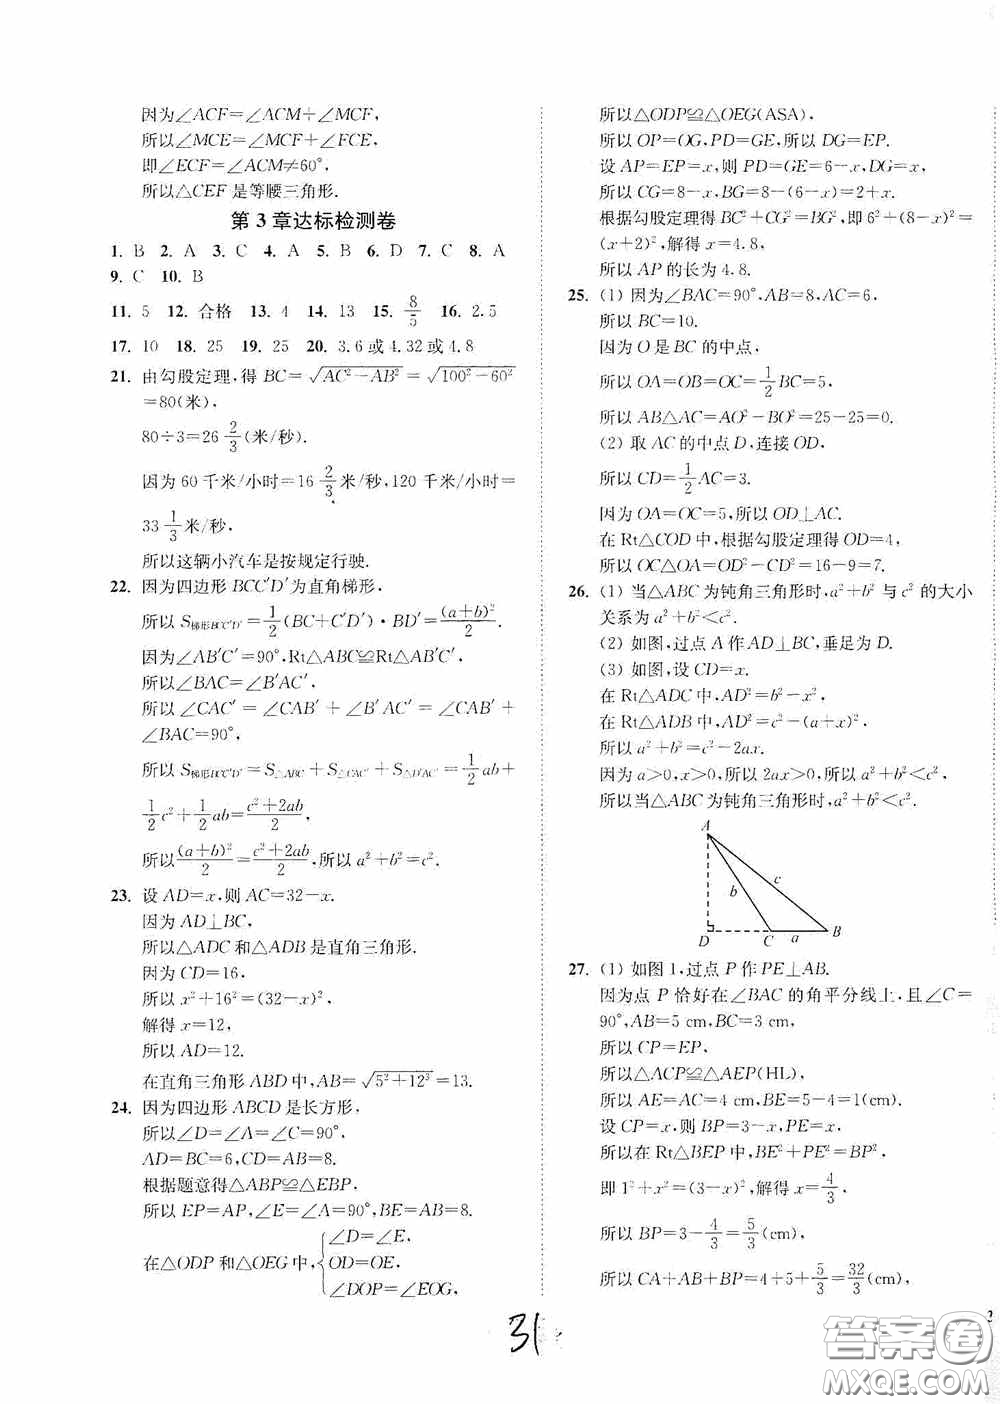 因为∠ACF=∠ACM+∠MCF,
所以∠MCE=∠MCF+∠FCE,
即∠ECF=∠ACM≠60°,
所以△CEF是等腰三角形.
第3章达标检测卷
1. B 2. A 3. C 4. A 5. B 6. D 7. C 8. A
9. C 10. B
11. 5 12. 合格 13. 4 14. 13 15. 8/5 16. 2.5
17. 10 18. 25 19. 25 20. 3.6或4.32或4.8
21. 由勾股定理,得 BC=√(AC²-AB²)=√(100²-60²)
=80(米).
80÷3=26 2/3(米/秒).
因为60千米/小时=16 2/3米/秒,120千米/小时=
33 1/3米/秒,
所以这辆小汽车是按规定行驶.
22. 因为四边形BCC′D′为直角梯形,
所以S梯形BCC′D′=1/2(BC+C′D′)·BD′=(a+b)²/2.
因为∠AB′C′=90°,Rt△ABC≌Rt△AB′C′,
所以∠BAC=∠B′AC′,
所以∠CAC′=∠CAB′+∠B′AC′=∠CAB′+
∠BAC=90°,
所以S梯形BCC′D′=S△ABC+S△CAC′+S△D′AC′=1/2ab+
1/2c²+1/2ab=(c²+2ab)/2,
所以(a+b)²/2=(c²+2ab)/2,所以a²+b²=c².
23. 设AD=x,则AC=32-x.
因为AD⊥BC,
所以△ADC和△ADB是直角三角形.
因为CD=16,
所以x²+16²=(32-x)²,
解得x=12,
所以AD=12.
在直角三角形ABD中,AB=√(5²+12²)=13.
24. 因为四边形ABCD是长方形,
所以∠D=∠A=∠C=90°,
AD=BC=6,CD=AB=8.
根据题意得△ABP≌△EBP,
所以EP=AP,∠E=∠A=90°,BE=AB=8.
在△ODP和△OEG中,{∠D=∠E,
OD=OE,
∠DOP=∠EOG,
所以△ODP≌△OEG(ASA),
所以OP=OG,PD=GE,所以DG=EP.
设AP=EP=x,则PD=GE=6-x,DG=x,
所以CG=8-x,BG=8-(6-x)=2+x.
根据勾股定理得BC²+CG²=BG²,即6²+(8-x)²=
(x+2)²,解得x=4.8,
所以AP的长为4.8.
25. (1) 因为∠BAC=90°,AB=8,AC=6,
所以BC=10.
因为O是BC的中点,
所以OA=OB=OC=1/2BC=5,
所以AB△AC=AO²-BO²=25-25=0.
(2) 取AC的中点D,连接OD,
所以CD=1/2AC=3.
因为OA=OC=5,所以OD⊥AC.
在Rt△COD中,根据勾股定理得OD=4,
所以OC△OA=OD²-CD²=16-9=7.
26. (1) 当△ABC为钝角三角形时,a²+b²与c²的大小
关系为a²+b²<c².
(2) 如图,过点A作AD⊥BC,垂足为D.
(3) 如图,设CD=x.
在Rt△ADC中,AD²=b²-x²,
在Rt△ADB中,AD²=c²-(a+x)²,
所以a²+b²=c²-2ax.
因为a>0,x>0,所以2ax>0,所以a²+b²<c²,
所以当△ABC为钝角三角形时,a²+b²<c².
A
b
c
D
C
a
B
27. (1) 如图1,过点P作PE⊥AB.
因为点P恰好在∠BAC的角平分线上,且∠C=
90°,AB=5 cm,BC=3 cm,
所以CP=EP,
所以△ACP≌△AEP(HL),
所以AE=AC=4 cm,BE=5-4=1(cm).
设CP=x,则BP=3-x,PE=x,
所以在Rt△BEP中,BE²+PE²=BP²
即1²+x²=(3-x)²,解得x=4/3,
所以BP=3-4/3=5/3(cm),
所以CA+AB+BP=4+5+5/3=32/3(cm),
31
答案圈
MXQE.COM